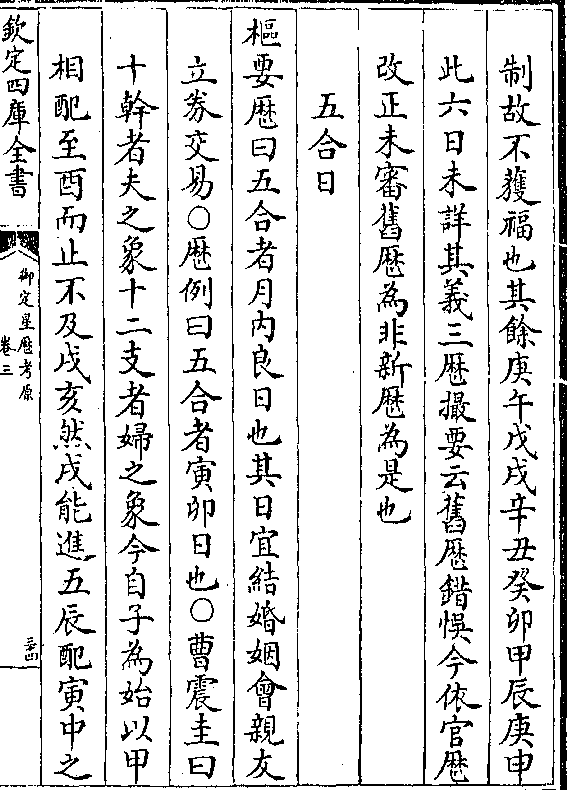 制故不獲福也其餘庚午戊戌辛丑癸卯甲辰庚申
此六日未詳其義三厯撮要云舊厯錯悞今依官厯
改正未審舊厯為非新厯為是也
五合日
樞要厯曰五合者月内良日也其日宜結婚姻會親友
立券交易○厯例曰五合者寅卯日也○曹震圭曰
十幹者夫之象十二支者婦之象今自子為始以甲
相配至酉而止不及戌亥然戌能進五辰配寅中之
欽定四庫全書
御定星厯考原
卷三
三十四